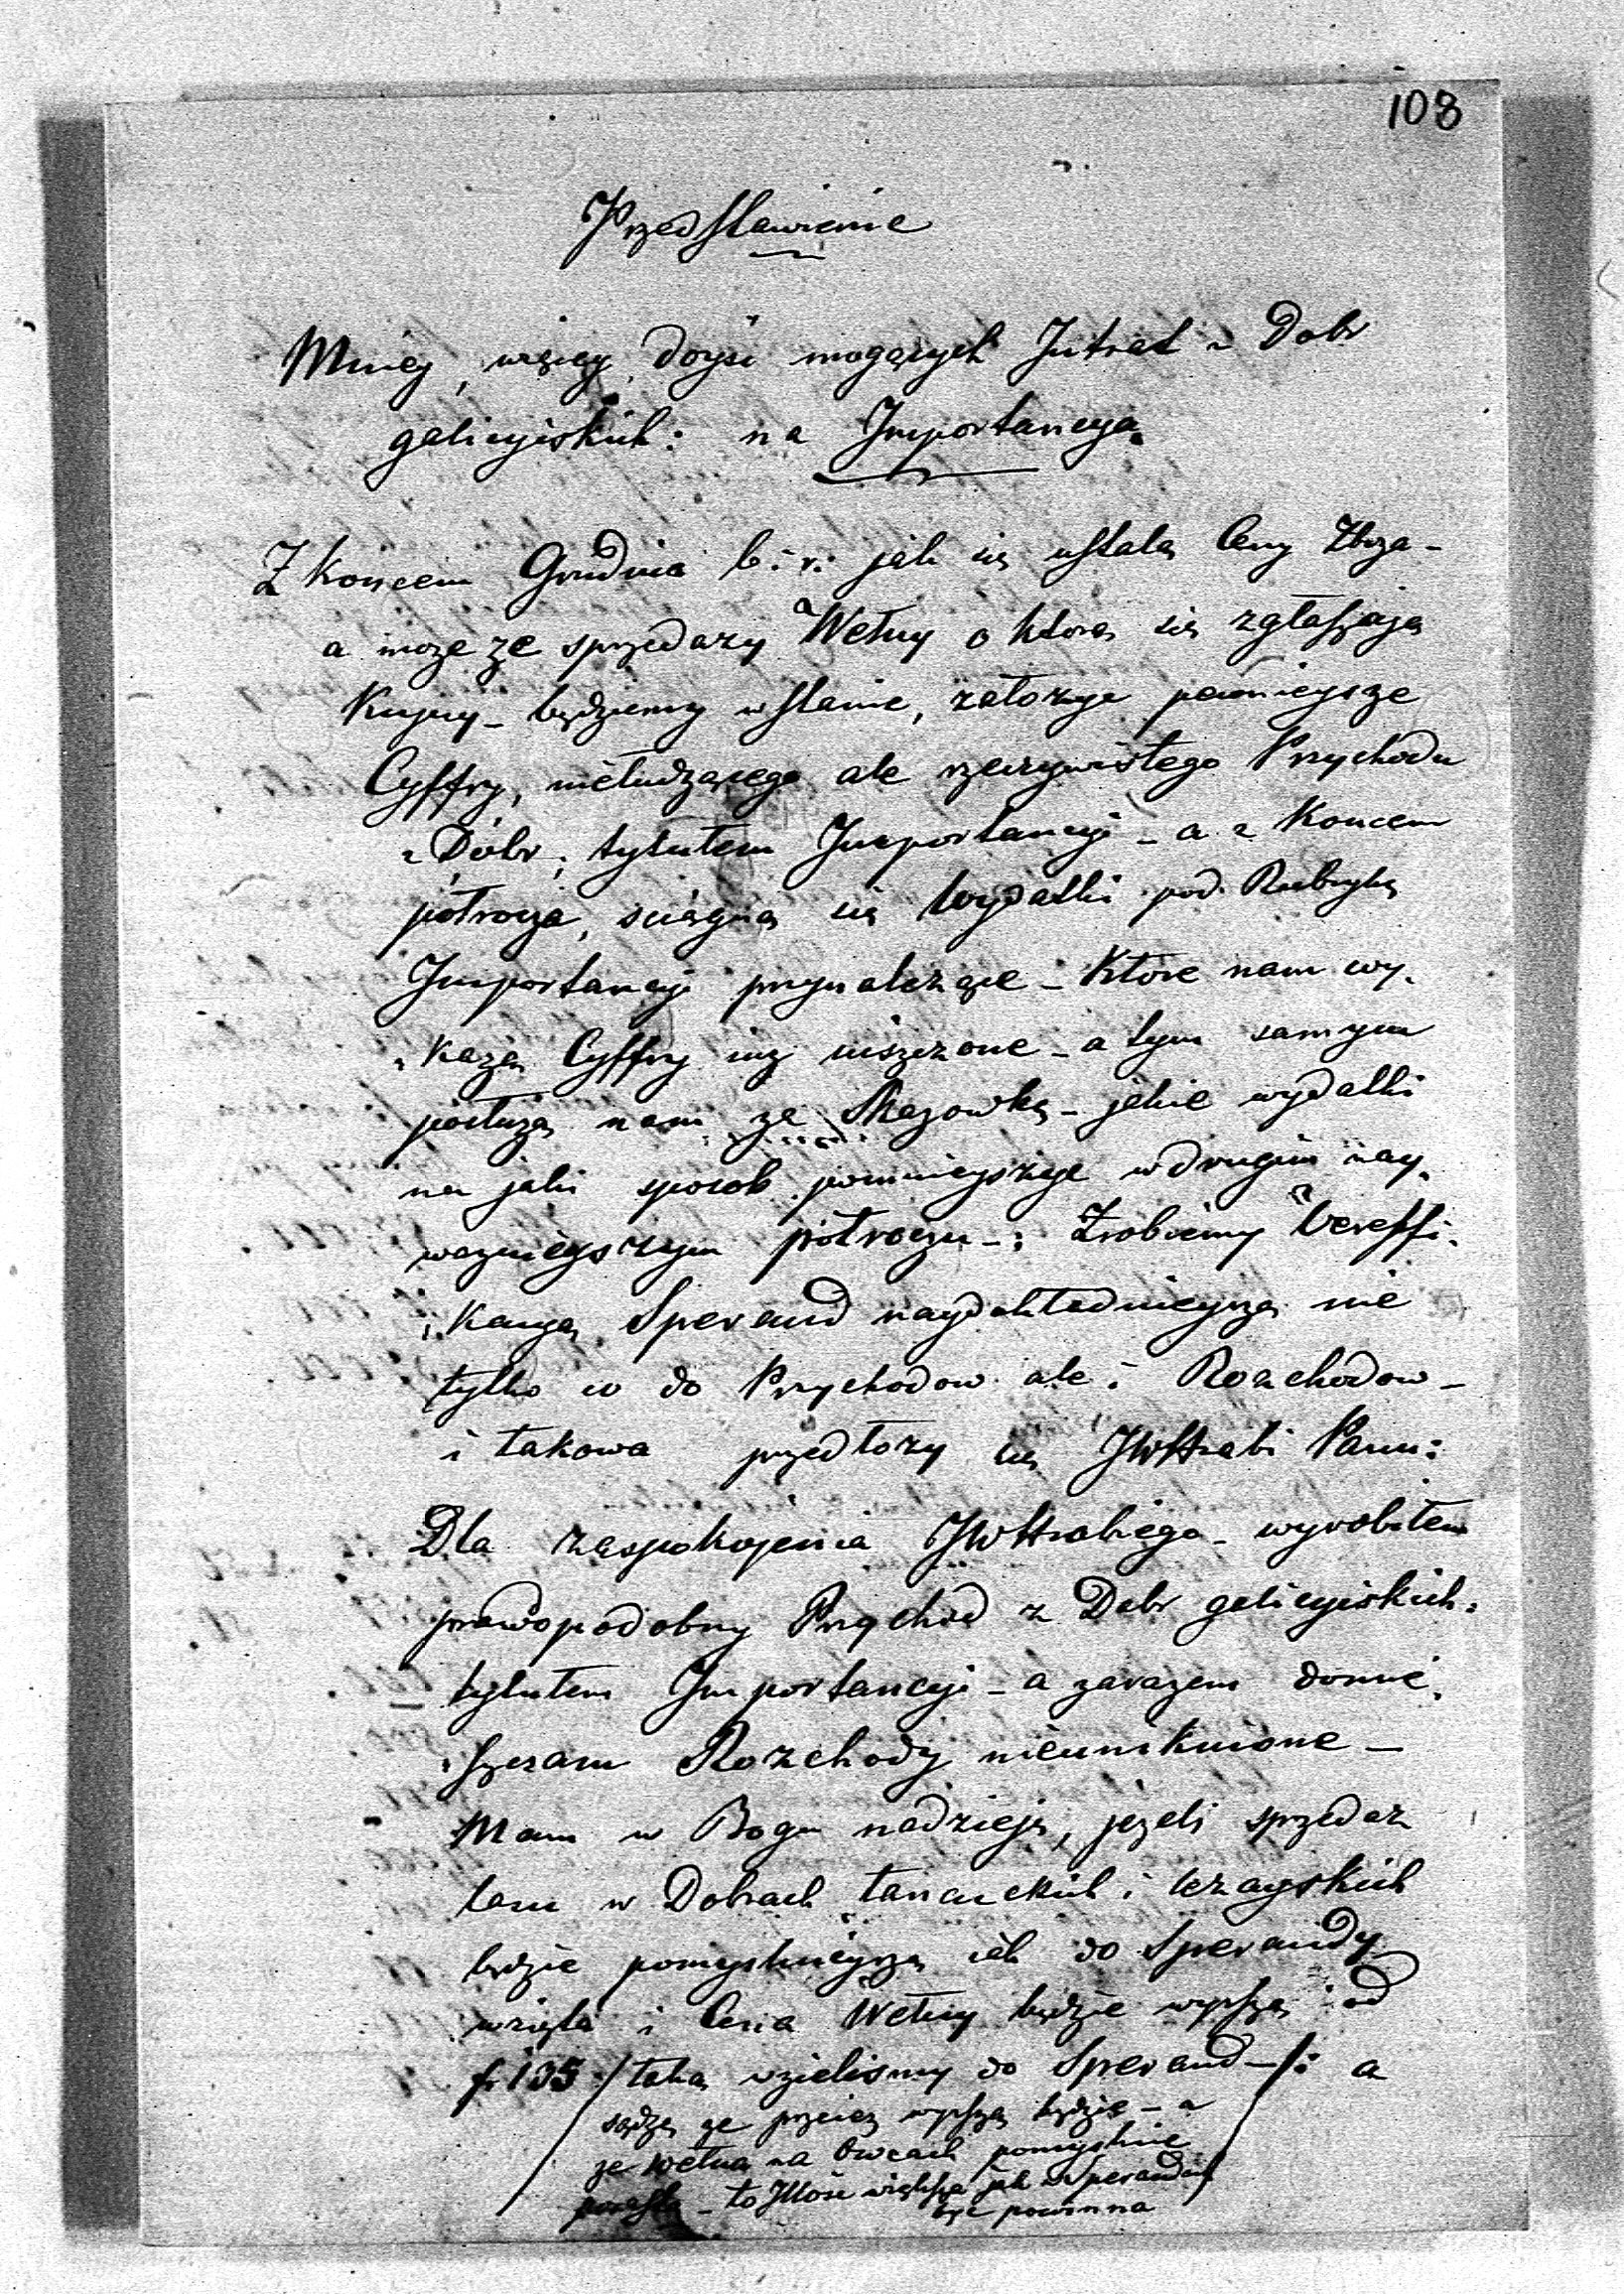 108
Przedstawienie
Mniey, więcy doyść mogących Intrat z Dobr
galicyiskich: na Importancyą
Z Koncem Grudnia b: r: jak się ustalą Ceny Zboża –
a moze ze sprzedazy Wełny o którą się zgłaszają
Kupcy – będziemy w stanie, załozyc pewnieysze
Cyffry, niełudzącego ale rzeczywistego Przychodu
z Dobr, tytułem Importancyi – a z Koncem
połrocza, sciągną się Wydatki pod Rubrykę
Importancyi przynależące – Ktore nam wy-
każą Cyffry już uiszczone – a tym samym
posłużą nam za Skazowkę – jakie wydatki
na jaki sposob pomnieyszyc w drugim nay-
wazniejszym połroczu –: Zrobiemy Vereffi-
kacyą Sperand naydokładnieyszą nie
tylko co do Przychodow ale i Rozchodow –
i takowa przedłozy się JWHrabi Panu:
Dla zaspokojenia JWHrabiego – wyrobiłem
prawdopodobny Przychod z Dobr galicyiskich:
tytułem Importancyi – a zarazem domie-
szczam Rozchody nieuniknione –
Mam w Bogu nadzieję, jezeli sprzedaz
lasu w Dobrach łancuckich i lezayskich
będzie pomyslnieyszą jak do Sperandy
wzięta i Cena Wełny będzie wyższą od
fr 135 / taką wzielismy do Sperand –/: a
sądzę ze przeciez wyzszą będzie – a
ze wełna na Owcach pomyslnie
porasta – to Ilosc większa jak w Sperandach
byc powinna